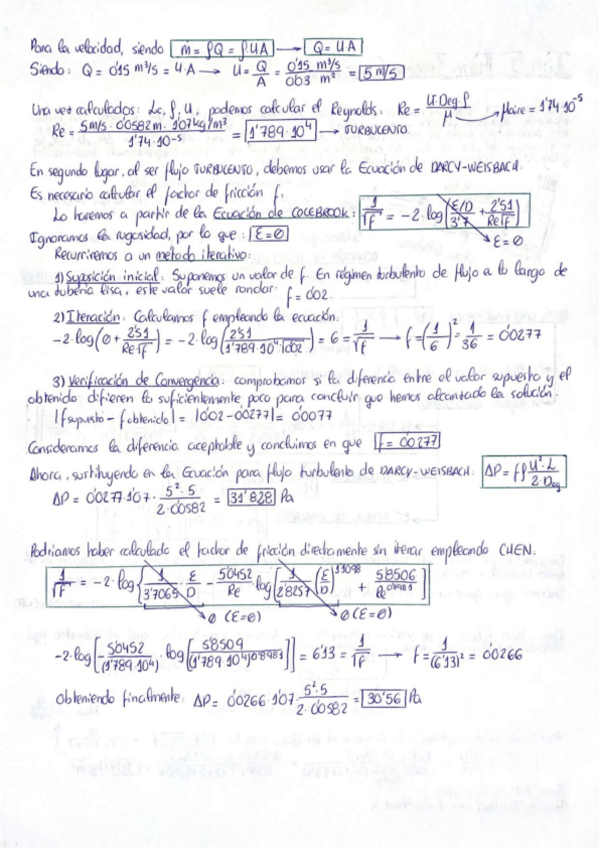 Para la velocidad, siendo ṁ = ρQ = ρUA → Q = U·A
Siendo: Q = 0'15 m³/s = U·A → U = Q/A = 0'15 m³/s / 0'03 m² = 5 m/s
Una vez calculados: Lc, ρ, U, podemos calcular el Reynolds: Re = U·Deg·ρ/μ → μaire = 1'74·10⁻⁵
Re = 5m/s · 0'0582m · 1'07kg/m³ / 1'74·10⁻⁵ = 1'789·10⁴ → TURBULENTO.
En segundo lugar, al ser flujo TURBULENTO, debemos usar la Ecuación de DARCY-WEISBACH.
Es necesario calcular el factor de fricción f.
Lo haremos a partir de la Ecuación de COLEBROOK: 1/√f = -2·log(ε/D/3'7 + 2'51/Re√f)
Ignoramos la rugosidad, por lo que: ε=0 → ε=0
Recurriremos a un metodo iterativo:
1) Suposición inicial: Suponemos un valor de f. En régimen turbulento de flujo a lo largo de
una tubería lisa, este valor suele rondar: f = 0'02.
2) Iteración: Calculamos f empleando la ecuación:
-2·log(0 + 2'51/Re·√f) = -2·log(2'51/1'789·10⁴·√0'02) = 6 = 1/√f → f = (1/6)² = 1/36 = 0'0277
3) Verificación de Convergencia: comprobamos si la diferencia entre el valor supuesto y el
obtenido difieren lo suficientemente poco para concluir que hemos alcanzado la solución.
|f supuesto - f obtenido| = |0'02-0'0277| = 0'0077
Consideramos la diferencia aceptable y concluimos en que f = 0'0277
Ahora, sustituyendo en la Ecuación para flujo turbulento de DARCY-WEISBACH: ΔP = fρ U²·L/2·Deq
ΔP = 0'0277·1'07· 5²·5/2·0'0582 = 31'828 Pa
Podriamos haber calculado el factor de fricción directamente sin iterar empleando CHEN.
1/√f = -2·log{1/3'7065 · ε/D - 5'0452/Re · log[1/2'8257 (ε/D)^1'1098 + 5'8506/Re^0'8981]}
0 (ε=0) 0 (ε=0)
-2·log[-5'0452/(1'789·10⁴) · log[5'8509/(1'789·10⁴)^0'8981]] = 6'13 = 1/√f → f = 1/(6'13)² = 0'0266
Obteniendo finalmente: ΔP = 0'0266·1'07· 5²·5/2·0'0582 = 30'56 Pa